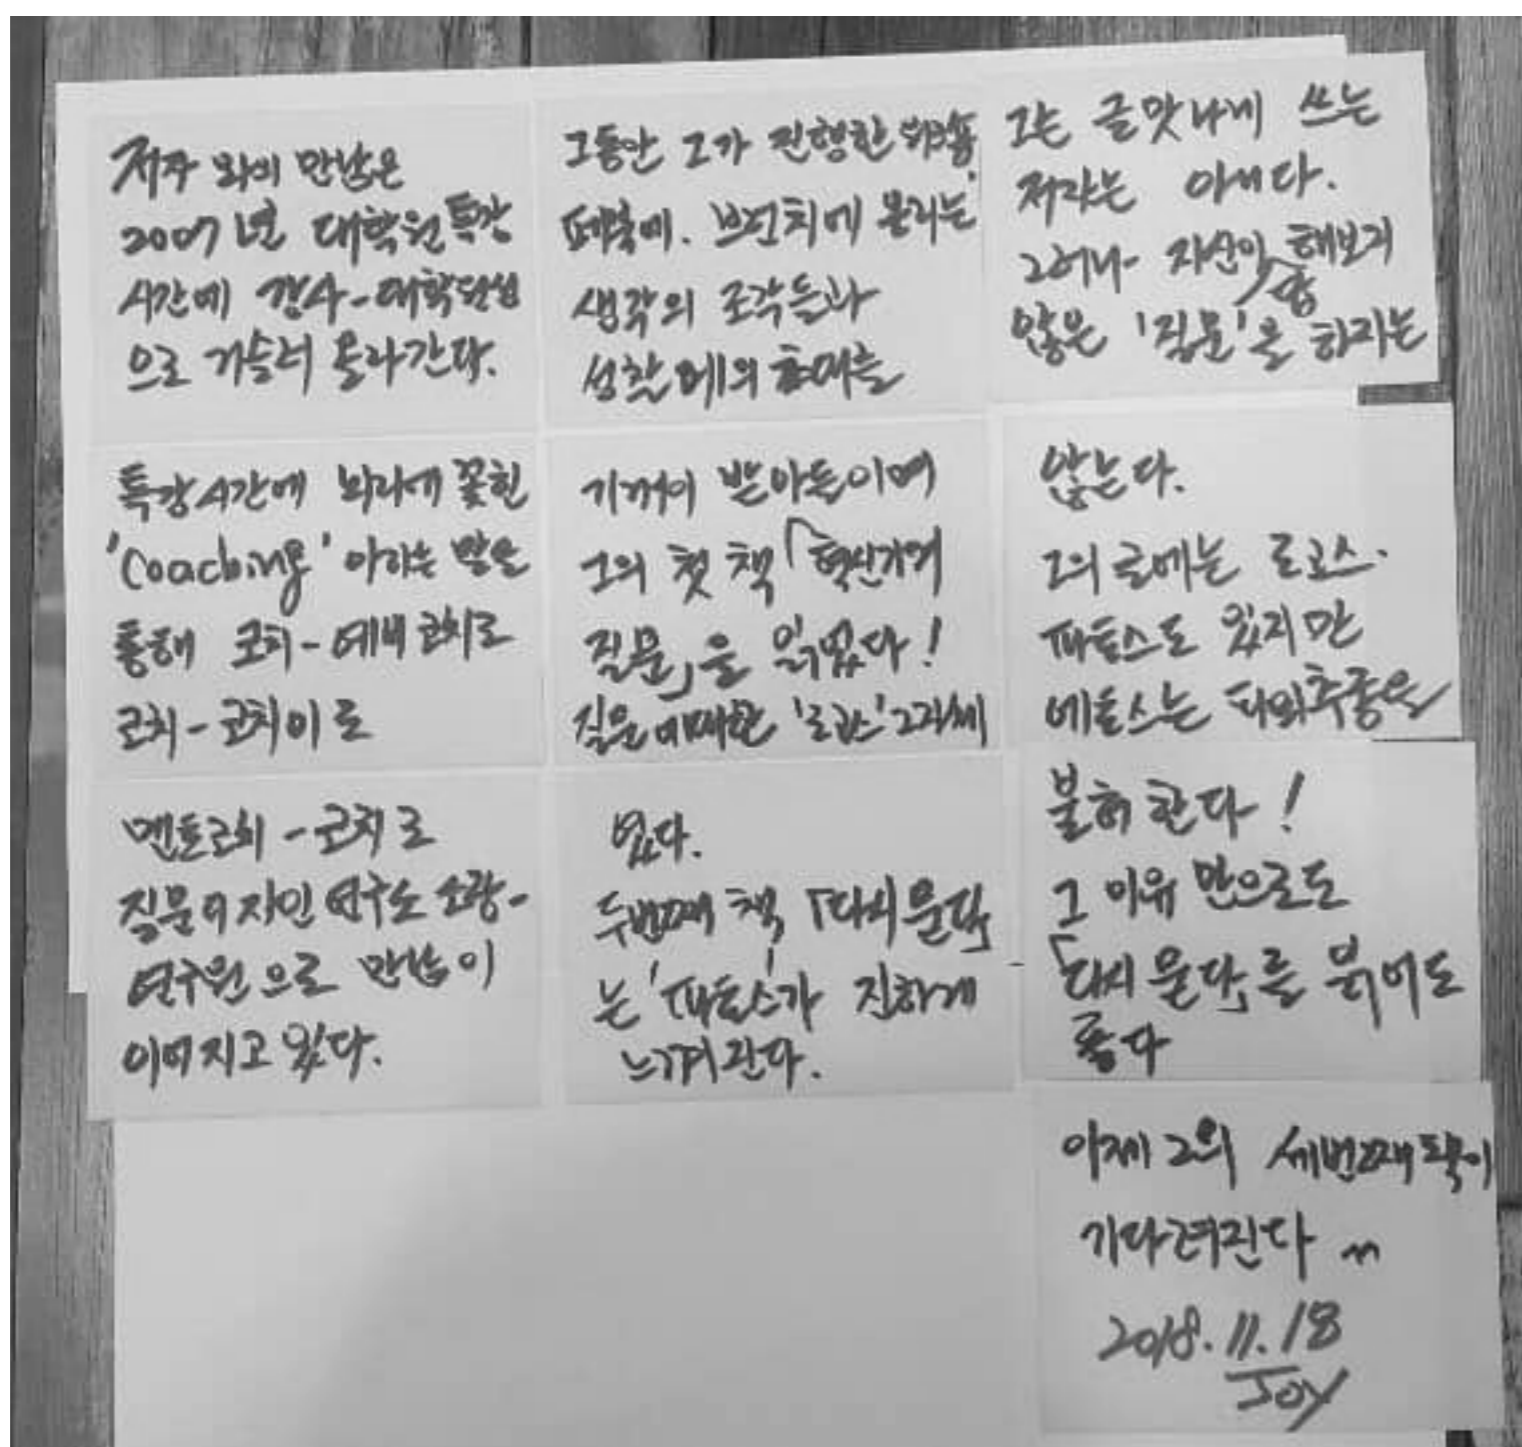 저자와의 만남은
2007년 대학원 특강
시간에 강사-대학원생
으로 거슬러 올라간다.
특강시간에 뇌리에 꽂힌
'Coaching' 이라는 말을
통해 코치-예비코치로
코치-코치이로
멘토코치-코치로
질문디자인연구소 소장-
연구원으로 만남이
이어지고 있다.
그동안 그가 진행한 워크숍,
페북에. 브런치에 올리는
생각의 조각들과
성찰에의 초대를
기꺼이 받아들이며
그의 첫 책 「혁신가의
질문」을 읽었다!
질문에 대한 '로고스' 그자체
였다.
두번째 책 「다시 묻다」
는 '파토스'가 진하게
느껴진다.
그는 글맛나게 쓰는
저자는 아니다.
그러나 자신이 답해보지
않은 '질문'을 하지는
않는다.
그의 글에는 로고스.
파토스도 있지만
에토스는 타의추종을
불허한다!
그 이유 만으로도
「다시 묻다」를 읽어도
좋다
이제 그의 세번째 토픽이
기다려진다 ^^
2018.11.18
Joy